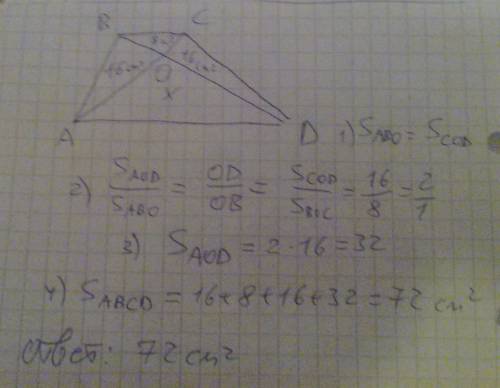 B C
8 см²
16 см² O 16 см²
x
A D 1) S_ABO = S_COD
2) S_AOD/S_ABO = OD/OB = S_COD/S_BOC = 16/8 = 2/1
3) S_AOD = 2·16 = 32
4) S_ABCD = 16+8+16+32 = 72 см²
Ответ: 72 см²